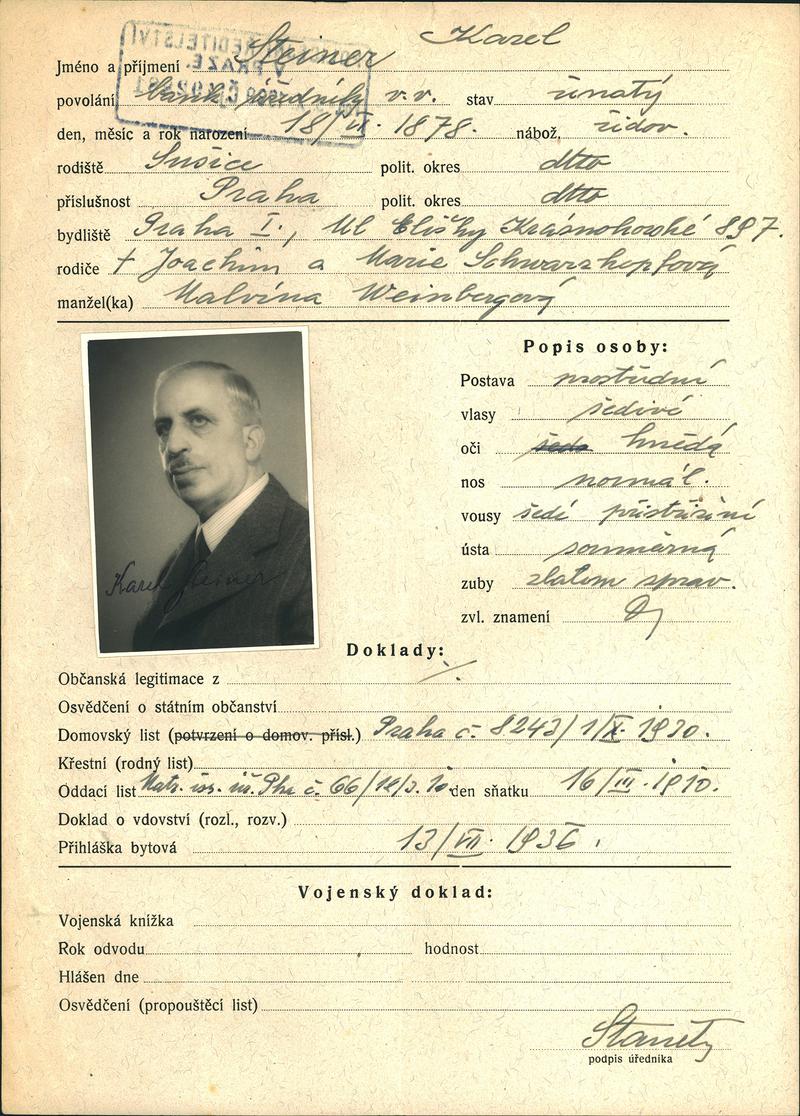 Jméno a příjmení Steiner Karel
povolání bank. úředník v. v. stav ženatý
den, měsíc a rok narození 18/ 1878. nábož. židov.
rodiště Sušice polit. okres dtto
příslušnost Praha polit. okres dtto
bydliště Praha I., Ul Elišky Krásnohorské 897.
rodiče † Joachim a Marie Schwarzkopfová
manžel(ka) Malvína Weinbergová
Popis osoby:
Postava prostřední
vlasy šedivé
oči šedo hnědá
nos normál.
vousy šedé přistřižní
ústa souměrná
zuby zlatem sprav.
zvl. znamení
Karel Steiner
Doklady:
Občanská legitimace z
Osvědčení o státním občanství
Domovský list (potvrzení o domov. přísl.) Praha č. 8243/ 1/X. 1930.
Křestní (rodný list)
Oddací list Matr. isr. Pha č. 66/ den sňatku 16/III. 1910.
Doklad o vdovství (rozl., rozv.)
Přihláška bytová 13/VII. 1936.
Vojenský doklad:
Vojenská knížka
Rok odvodu hodnost
Hlášen dne
Osvědčení (propouštěcí list)
podpis úředníka